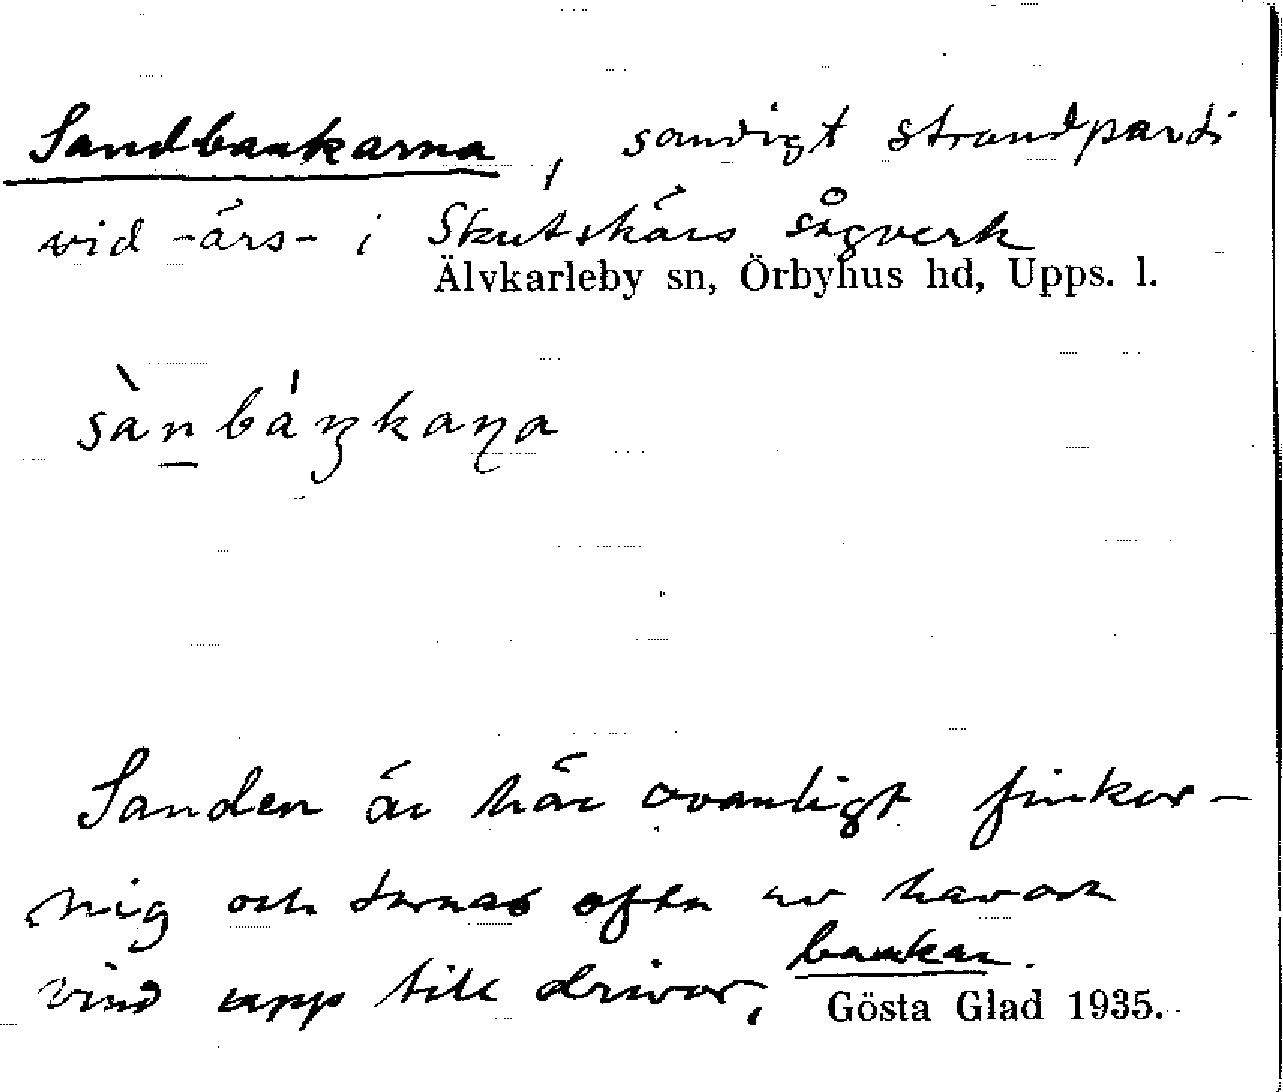 Sandbankarna, sandigt strandparti
vid -ärs- i Skutskärs sågverk
Älvkarleby sn, Örbyhus hd, Upps. l.
sàn̲báŋkaɳa
Sanden är här ovanligt finkor-
nig och turnas ofta av hav och
vind upp till drivor, bankar.
Gösta Glad 1935.